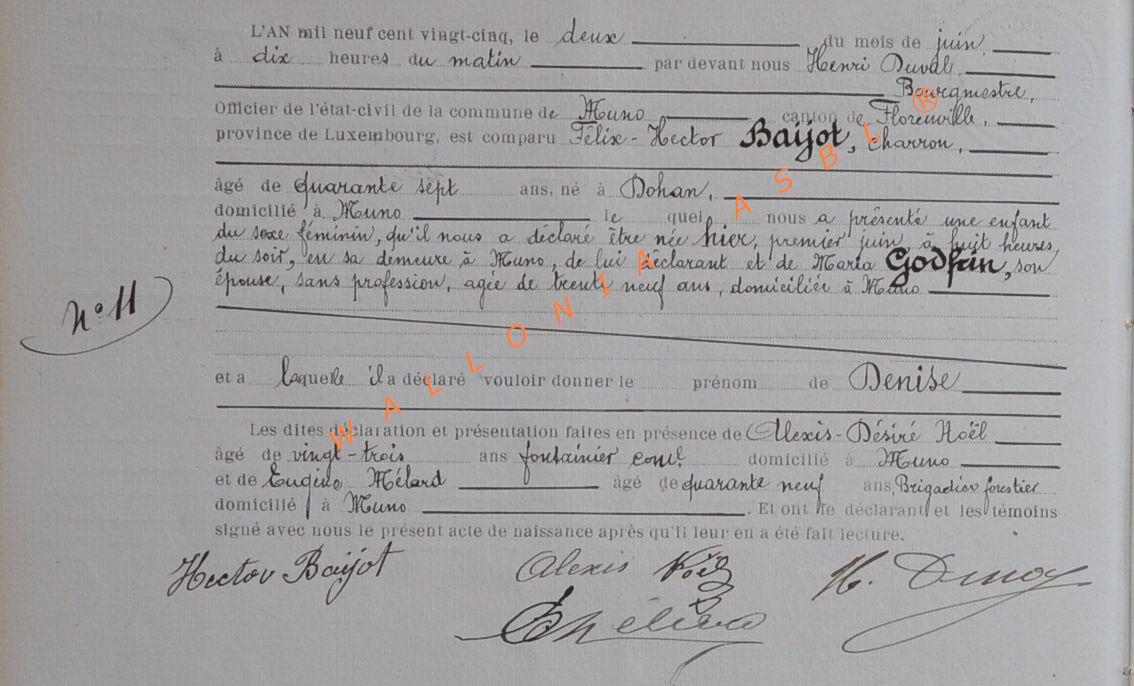 L'AN mil neuf cent vingt-cinq, le deux du mois de juin,
à dix heures du matin par devant nous Henri Duval,
Bourgmestre,
Officier de l'état-civil de la commune de Muno canton de Florenville,
province de Luxembourg, est comparu Félix-Hector Baijot, charron,
âgé de quarante sept ans, né à Dohan,
domicilié à Muno le quel nous a présenté une enfant
du sexe féminin, qu'il nous a déclaré être née hier, premier juin, à huit heures
du soir, en sa demeure à Muno, de lui déclarant et de Maria Godfrin, son
épouse, sans profession, agée de trente neuf ans, domiciliée à Muno
N° 11
et a laquelle il a déclaré vouloir donner le prénom de Denise
Les dites déclaration et présentation faites en présence de Alexis-Désiré Noël
âgé de vingt-trois ans fontainier coml. domicilié à Muno
et de Eugène Mélard âgé de quarante neuf ans, Brigadier forestier
domicilié à Muno . Et ont le déclarant et les témoins
signé avec nous le présent acte de naissance après qu'il leur en a été fait lecture.
Hector Baijot Alexis Noël H. Duval
WALLONIA ASBL ®